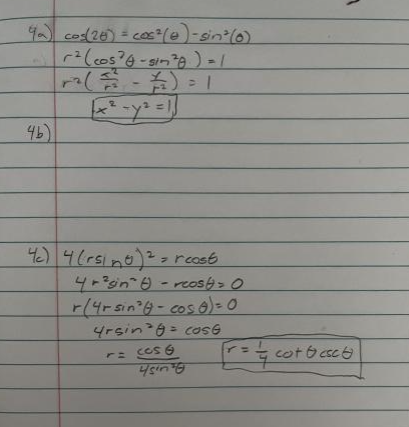 4a) cos(2θ) = cos²(θ) - sin²(θ)
r²(cos²θ - sin²θ) = 1
r²(x²/r² - y/r²) = 1
x² - y² = 1
4b)
4c) 4(rsinθ)² = rcosθ
4r²sin²θ - rcosθ = 0
r(4rsin²θ - cosθ) = 0
4rsin²θ = cosθ
r = cosθ/4sin²θ r = 1/4 cotθcscθ